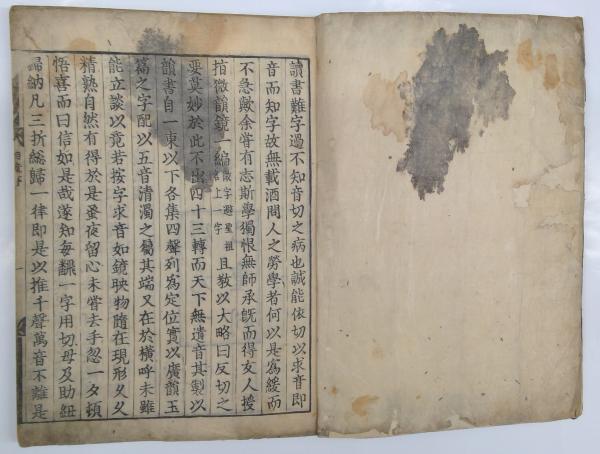 讀書難字過不知音切之病也誠能依切以求音即
音而知字故無載酒問人之勞學者何以是爲緩而
不急歟余嘗有志斯學獨恨無師承旣而得友人授
指微韻鏡一編微字避聖祖名上一字且教以大略曰反切之
要莫妙於此不出四十三轉而天下無遺音其製以
韻書自一東以下各集四聲列爲定位實以廣韻玉
篇之字配以五音清濁之屬其端又在於橫呼未雖
能立談以竟若按字求音如鏡映物隨在現形久久
精熟自然有得於是蚤夜留心未嘗去手忽一夕頓
悟喜而曰信如是哉遂知每飜一字用切母及助紐
歸納凡三折總歸一律即是以推千聲萬音不離是